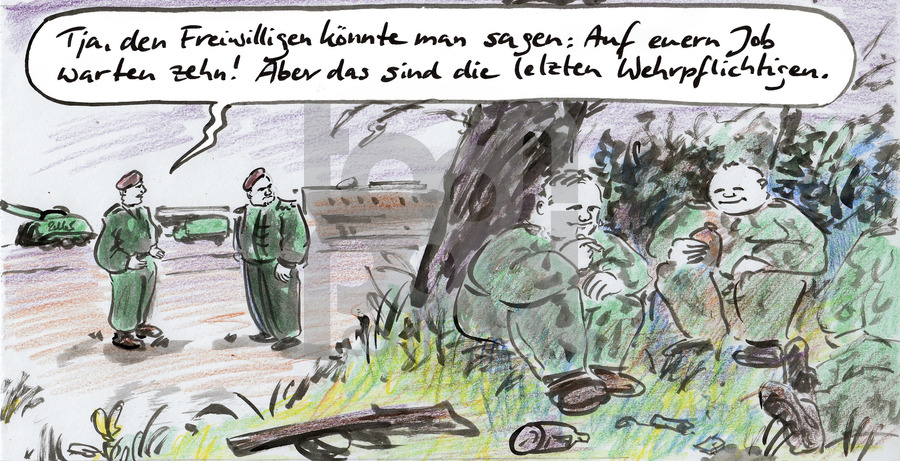 Tja, den Freiwilligen könnte man sagen: Auf euern Job
warten zehn! Aber das sind die letzten Wehrpflichtigen.